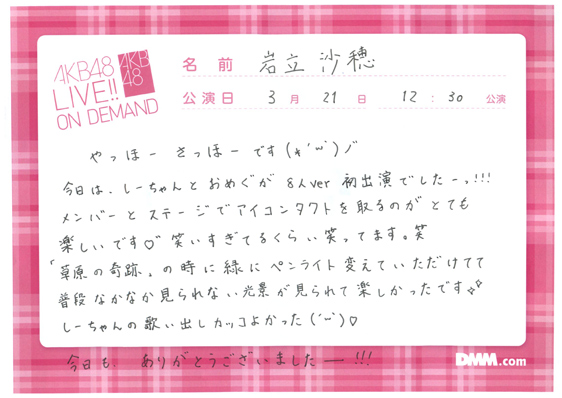 AKB48
LIVE!!
ON DEMAND
AKB
48
名前 岩立 沙穂
公演日 3月 21日 12:30 公演
やっほー さっほーです(*'ω')ノ
今日は、しーちゃんとおめぐが 8人ver 初出演でしたーっ!!!
メンバーとステージでアイコンタクトを取るのがとても
楽しいです♡ 笑いすぎてるくらい笑ってます。笑
「草原の奇跡」の時に緑にペンライト変えていただけてて
普段なかなか見られない光景が見られて楽しかったです✧✧
しーちゃんの歌い出しカッコよかった('ω')♡
今日も、ありがとうございましたー!!!
DMM.com